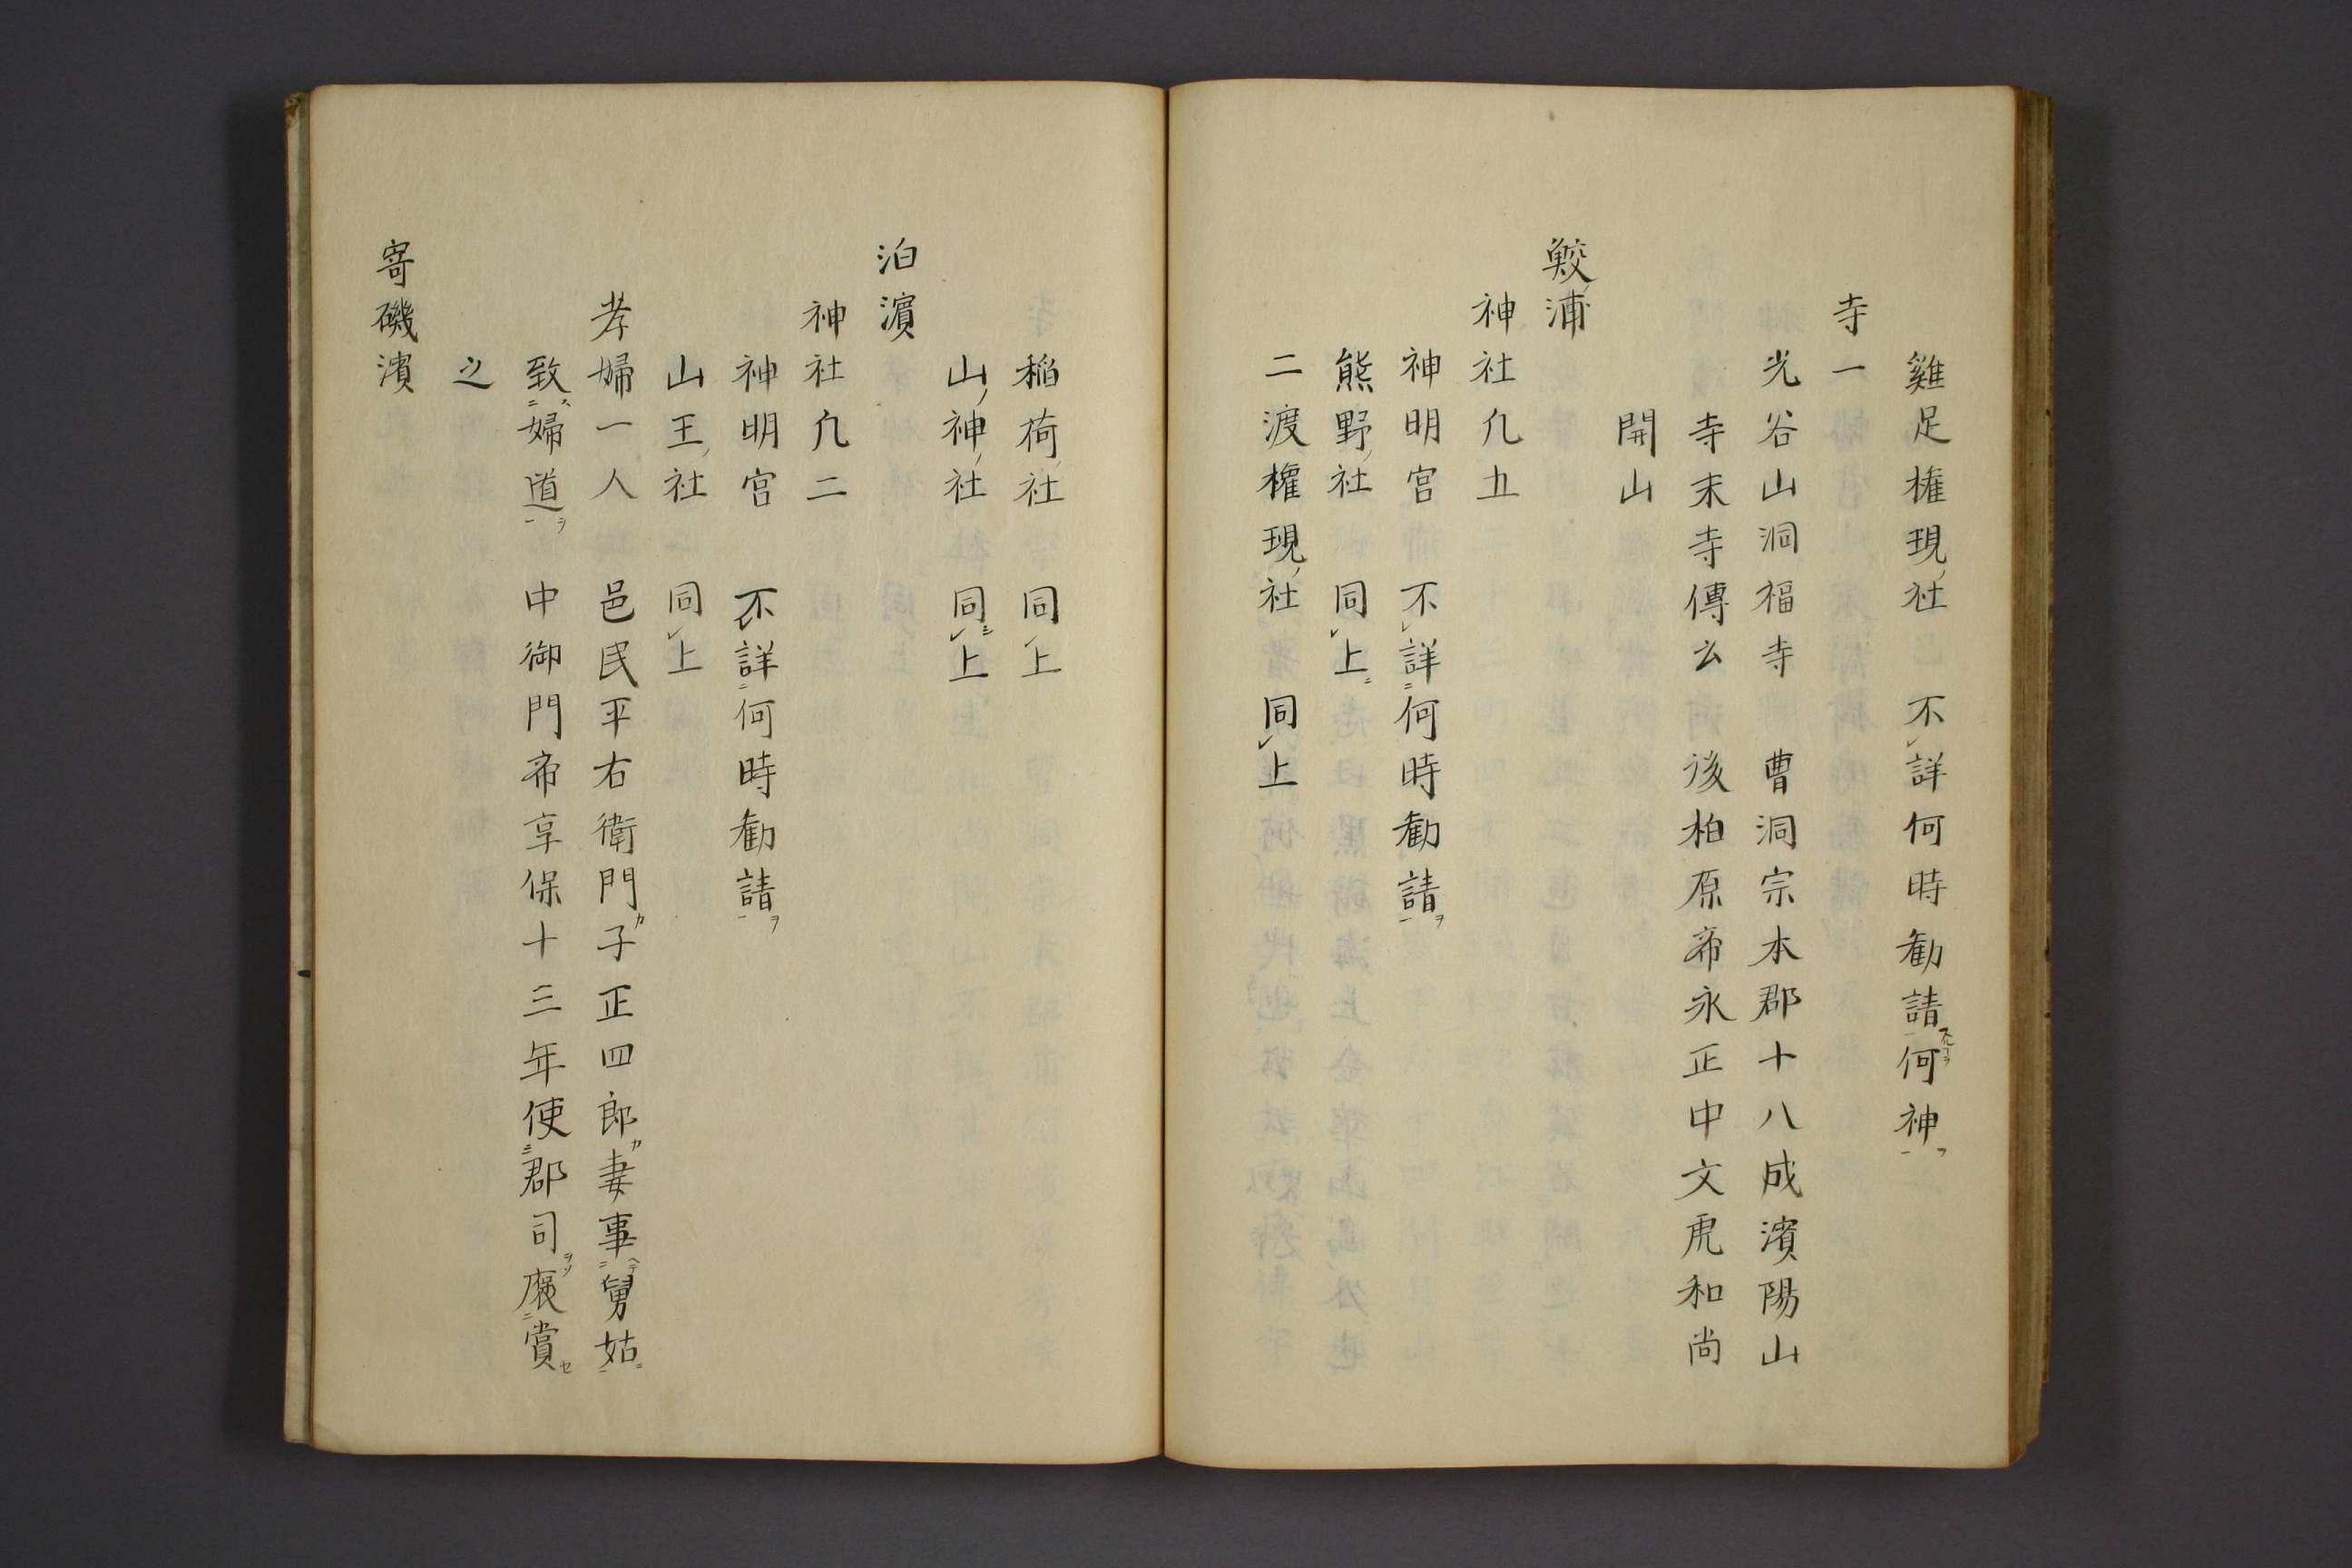 雞足権現社　不詳何時勧請何神
寺一
光谷山洞福寺　曹洞宗本郡十八成濱陽山
寺末寺傳云　後柏原帝永正中文虎和尚
開山
鮫浦
神社凢五
神明宮　不詳何時勧請
熊野社　同上
二渡権現社　同上
稲荷社　同上
山神社　同上
泊濱
神社凢二
神明宮　不詳何時勧請
山王社　同上
孝婦一人　邑民平右衛門子正四郎妻事舅姑
致婦道　中御門帝享保十三年使郡司褒賞
之
寄磯濱